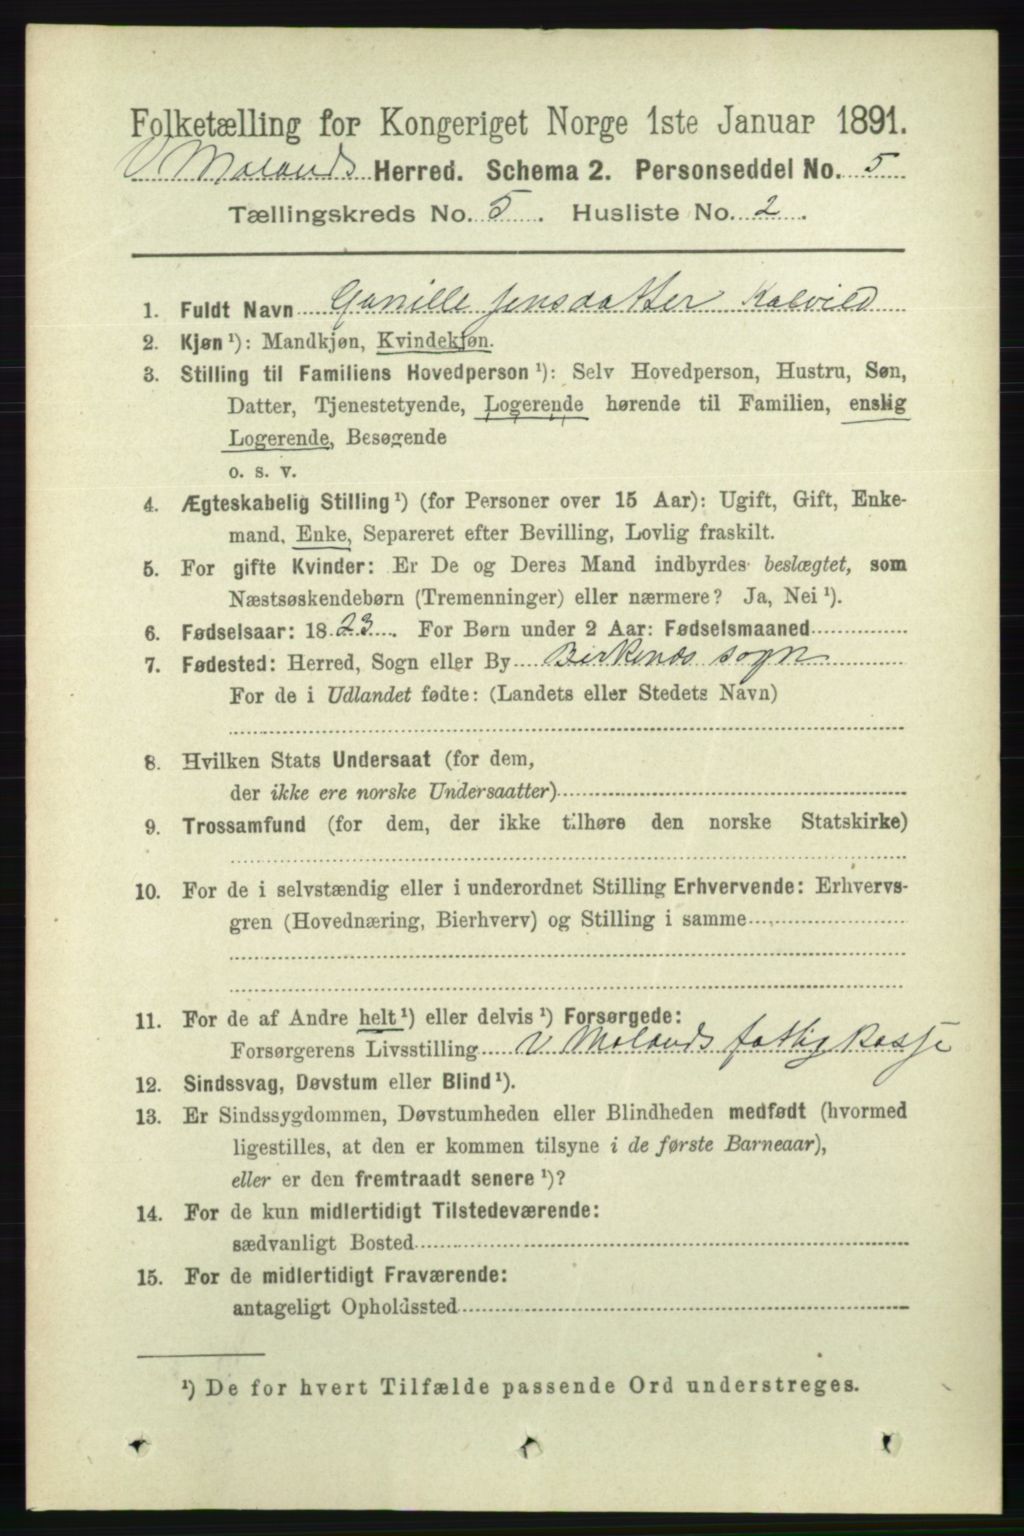 Folketælling for Kongeriget Norge 1ste Januar 1891.
V Molands Herred. Schema 2. Personseddel No. 5
Tællingskreds No. 5. Husliste No. 2.
1. Fuldt Navn Gunille Jensdatter Kalvild
2. Kjøn ¹): Mandkjøn, Kvindekjøn.
3. Stilling til Familiens Hovedperson ¹): Selv Hovedperson, Hustru, Søn,
Datter, Tjenestetyende, Logerende hørende til Familien, enslig
Logerende, Besøgende
o. s. v.
4. Ægteskabelig Stilling ¹) (for Personer over 15 Aar): Ugift, Gift, Enke-
mand, Enke, Separeret efter Bevilling, Lovlig fraskilt.
5. For gifte Kvinder: Er De og Deres Mand indbyrdes beslægtet, som
Næstsøskendebørn (Tremenninger) eller nærmere? Ja, Nei ¹).
6. Fødselsaar: 1823. For Børn under 2 Aar: Fødselsmaaned
7. Fødested: Herred, Sogn eller By Birkenæs sogn
For de i Udlandet fødte: (Landets eller Stedets Navn)
8. Hvilken Stats Undersaat (for dem,
der ikke ere norske Undersaatter)
9. Trossamfund (for dem, der ikke tilhøre den norske Statskirke)
10. For de i selvstændig eller i underordnet Stilling Erhvervende: Erhvervs-
gren (Hovednæring, Bierhverv) og Stilling i samme
11. For de af Andre helt ¹) eller delvis ¹) Forsørgede:
Forsørgerens Livsstilling V Molands fattig Kasse
12. Sindssvag, Døvstum eller Blind ¹).
13. Er Sindssygdommen, Døvstumheden eller Blindheden medfødt (hvormed
ligestilles, at den er kommen tilsyne i de første Barneaar),
eller er den fremtraadt senere ¹)?
14. For de kun midlertidigt Tilstedeværende:
sædvanligt Bosted
15. For de midlertidigt Fraværende:
antageligt Opholdssted
¹) De for hvert Tilfælde passende Ord understreges.